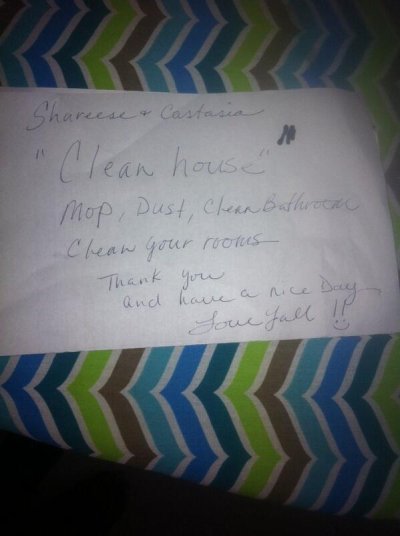 Shareese & Castasia
"Clean house"
Mop, Dust, Clean Bathroom
Clean your rooms
Thank you
and have a nice Day
Love yall !!